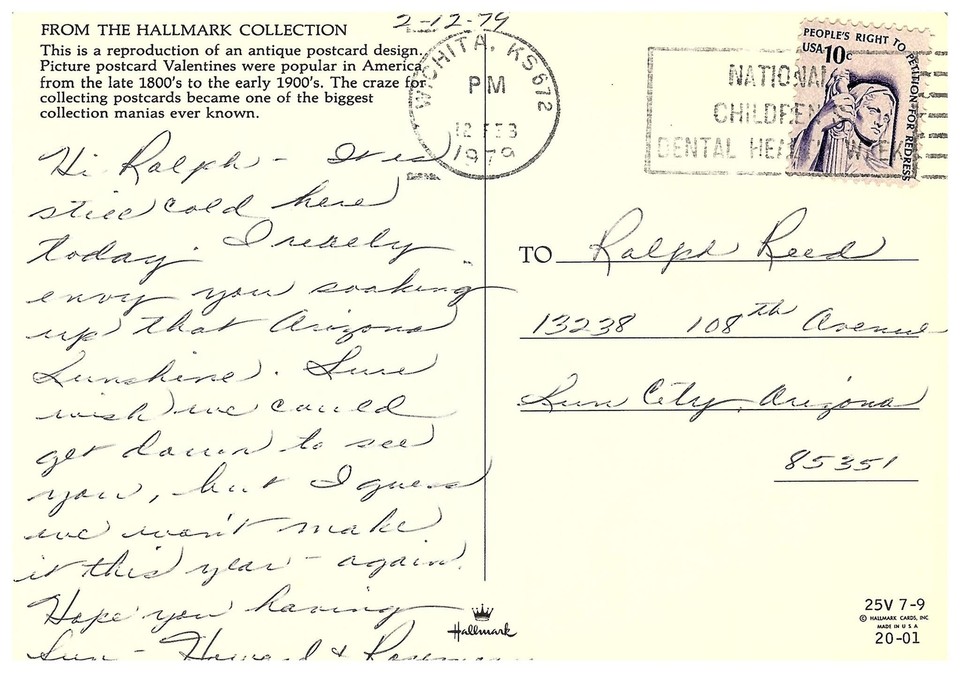 2-12-79
FROM THE HALLMARK COLLECTION
This is a reproduction of an antique postcard design.
Picture postcard Valentines were popular in America
from the late 1800's to the early 1900's. The craze for
collecting postcards became one of the biggest
collection manias ever known.
WICHITA, KS 672
PM
12 FEB
1979
NATIONAL
CHILDREN
DENTAL HEALTH WEEK
PEOPLE'S RIGHT TO PETITION FOR REDRESS
USA 10c
Hi Ralph - It is
still cold here
today. I really
envy you soaking
up that Arizona
Sunshine. Sure
wish we could
get down to see
you, but I guess
we won't make
it this year - again.
Hope you having
fun - Howard &
TO Ralph Reed
13238 108th Avenue
Sun City, Arizona
85351
Hallmark
25V 7-9
© HALLMARK CARDS, INC.
MADE IN U S A
20-01